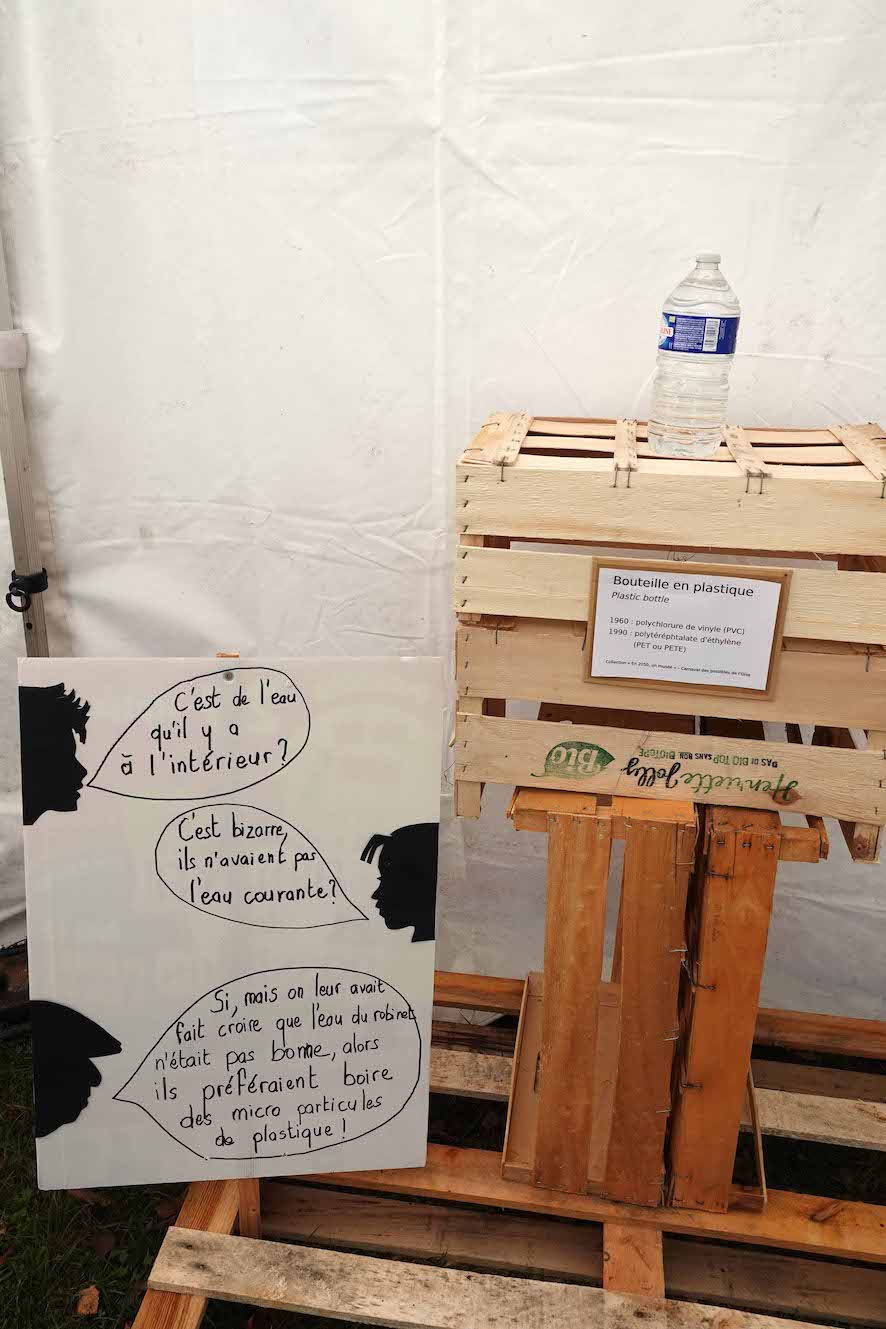 C'est de l'eau
qu'il y a
à l'intérieur?
C'est bizarre,
ils n'avaient pas
l'eau courante?
Si, mais on leur avait
fait croire que l'eau du robinet
n'était pas bonne, alors
ils préféraient boire
des micro particules
de plastique!
Bouteille en plastique
Plastic bottle
1960 : polychlorure de vinyle (PVC)
1990 : polytéréphtalate d'éthylène
(PET ou PETE)
Collection « En 2050, un musée » - Carnaval des possibles de l'Oise
Henriette Jolly
PAS DE BIO TOP SANS BON BIOTOPE
Bio